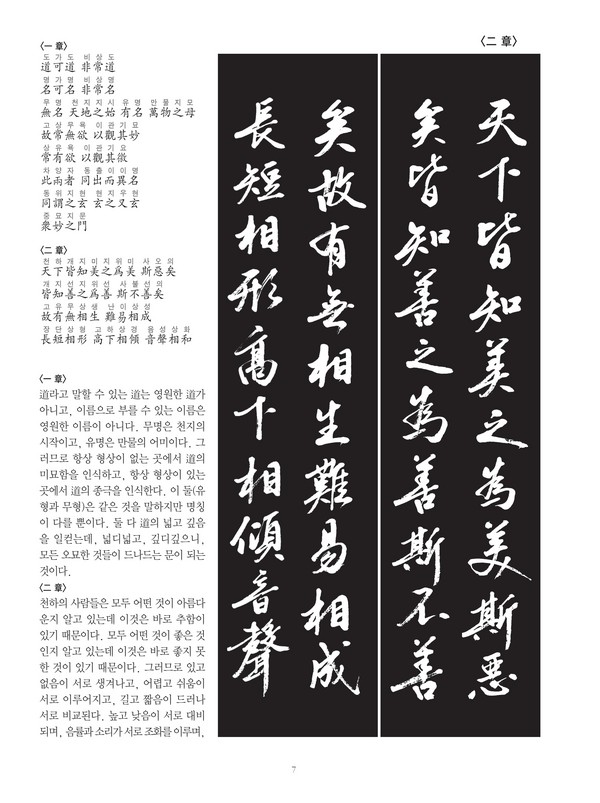 〈一 章〉
도가도 비상도
道可道 非常道
명가명 비상명
名可名 非常名
무명 천지지시 유명 만물지모
無名 天地之始 有名 萬物之母
고상무욕 이관기묘
故常無欲 以觀其妙
상유욕 이관기요
常有欲 以觀其徼
차양자 동출이이명
此兩者 同出而異名
동위지현 현지우현
同謂之玄 玄之又玄
중묘지문
衆妙之門
〈二 章〉
천하개지미지위미 사오의
天下皆知美之爲美 斯惡矣
개지선지위선 사불선의
皆知善之爲善 斯不善矣
고유무상생 난이상성
故有無相生 難易相成
장단상형 고하상경 음성상화
長短相形 高下相傾 音聲相和
〈一 章〉
道라고 말할 수 있는 道는 영원한 道가
아니고, 이름으로 부를 수 있는 이름은
영원한 이름이 아니다. 무명은 천지의
시작이고, 유명은 만물의 어미이다. 그
러므로 항상 형상이 없는 곳에서 道의
미묘함을 인식하고, 항상 형상이 있는
곳에서 道의 종극을 인식한다. 이 둘(유
형과 무형)은 같은 것을 말하지만 명칭
이 다를 뿐이다. 둘 다 道의 넓고 깊음
을 일컫는데, 넓디넓고, 깊디깊으니,
모든 오묘한 것들이 드나드는 문이 되는
것이다.
〈二 章〉
천하의 사람들은 모두 어떤 것이 아름다
운지 알고 있는데 이것은 바로 추함이
있기 때문이다. 모두 어떤 것이 좋은 것
인지 알고 있는데 이것은 바로 좋지 못
한 것이 있기 때문이다. 그러므로 있고
없음이 서로 생겨나고, 어렵고 쉬움이
서로 이루어지고, 길고 짧음이 드러나
서로 비교된다. 높고 낮음이 서로 대비
되며, 음률과 소리가 서로 조화를 이루며,
〈二 章〉
天下皆知美之為美斯惡
矣皆知善之為善斯不善
矣故有無相生難易相成
長短相形高下相傾音聲
7